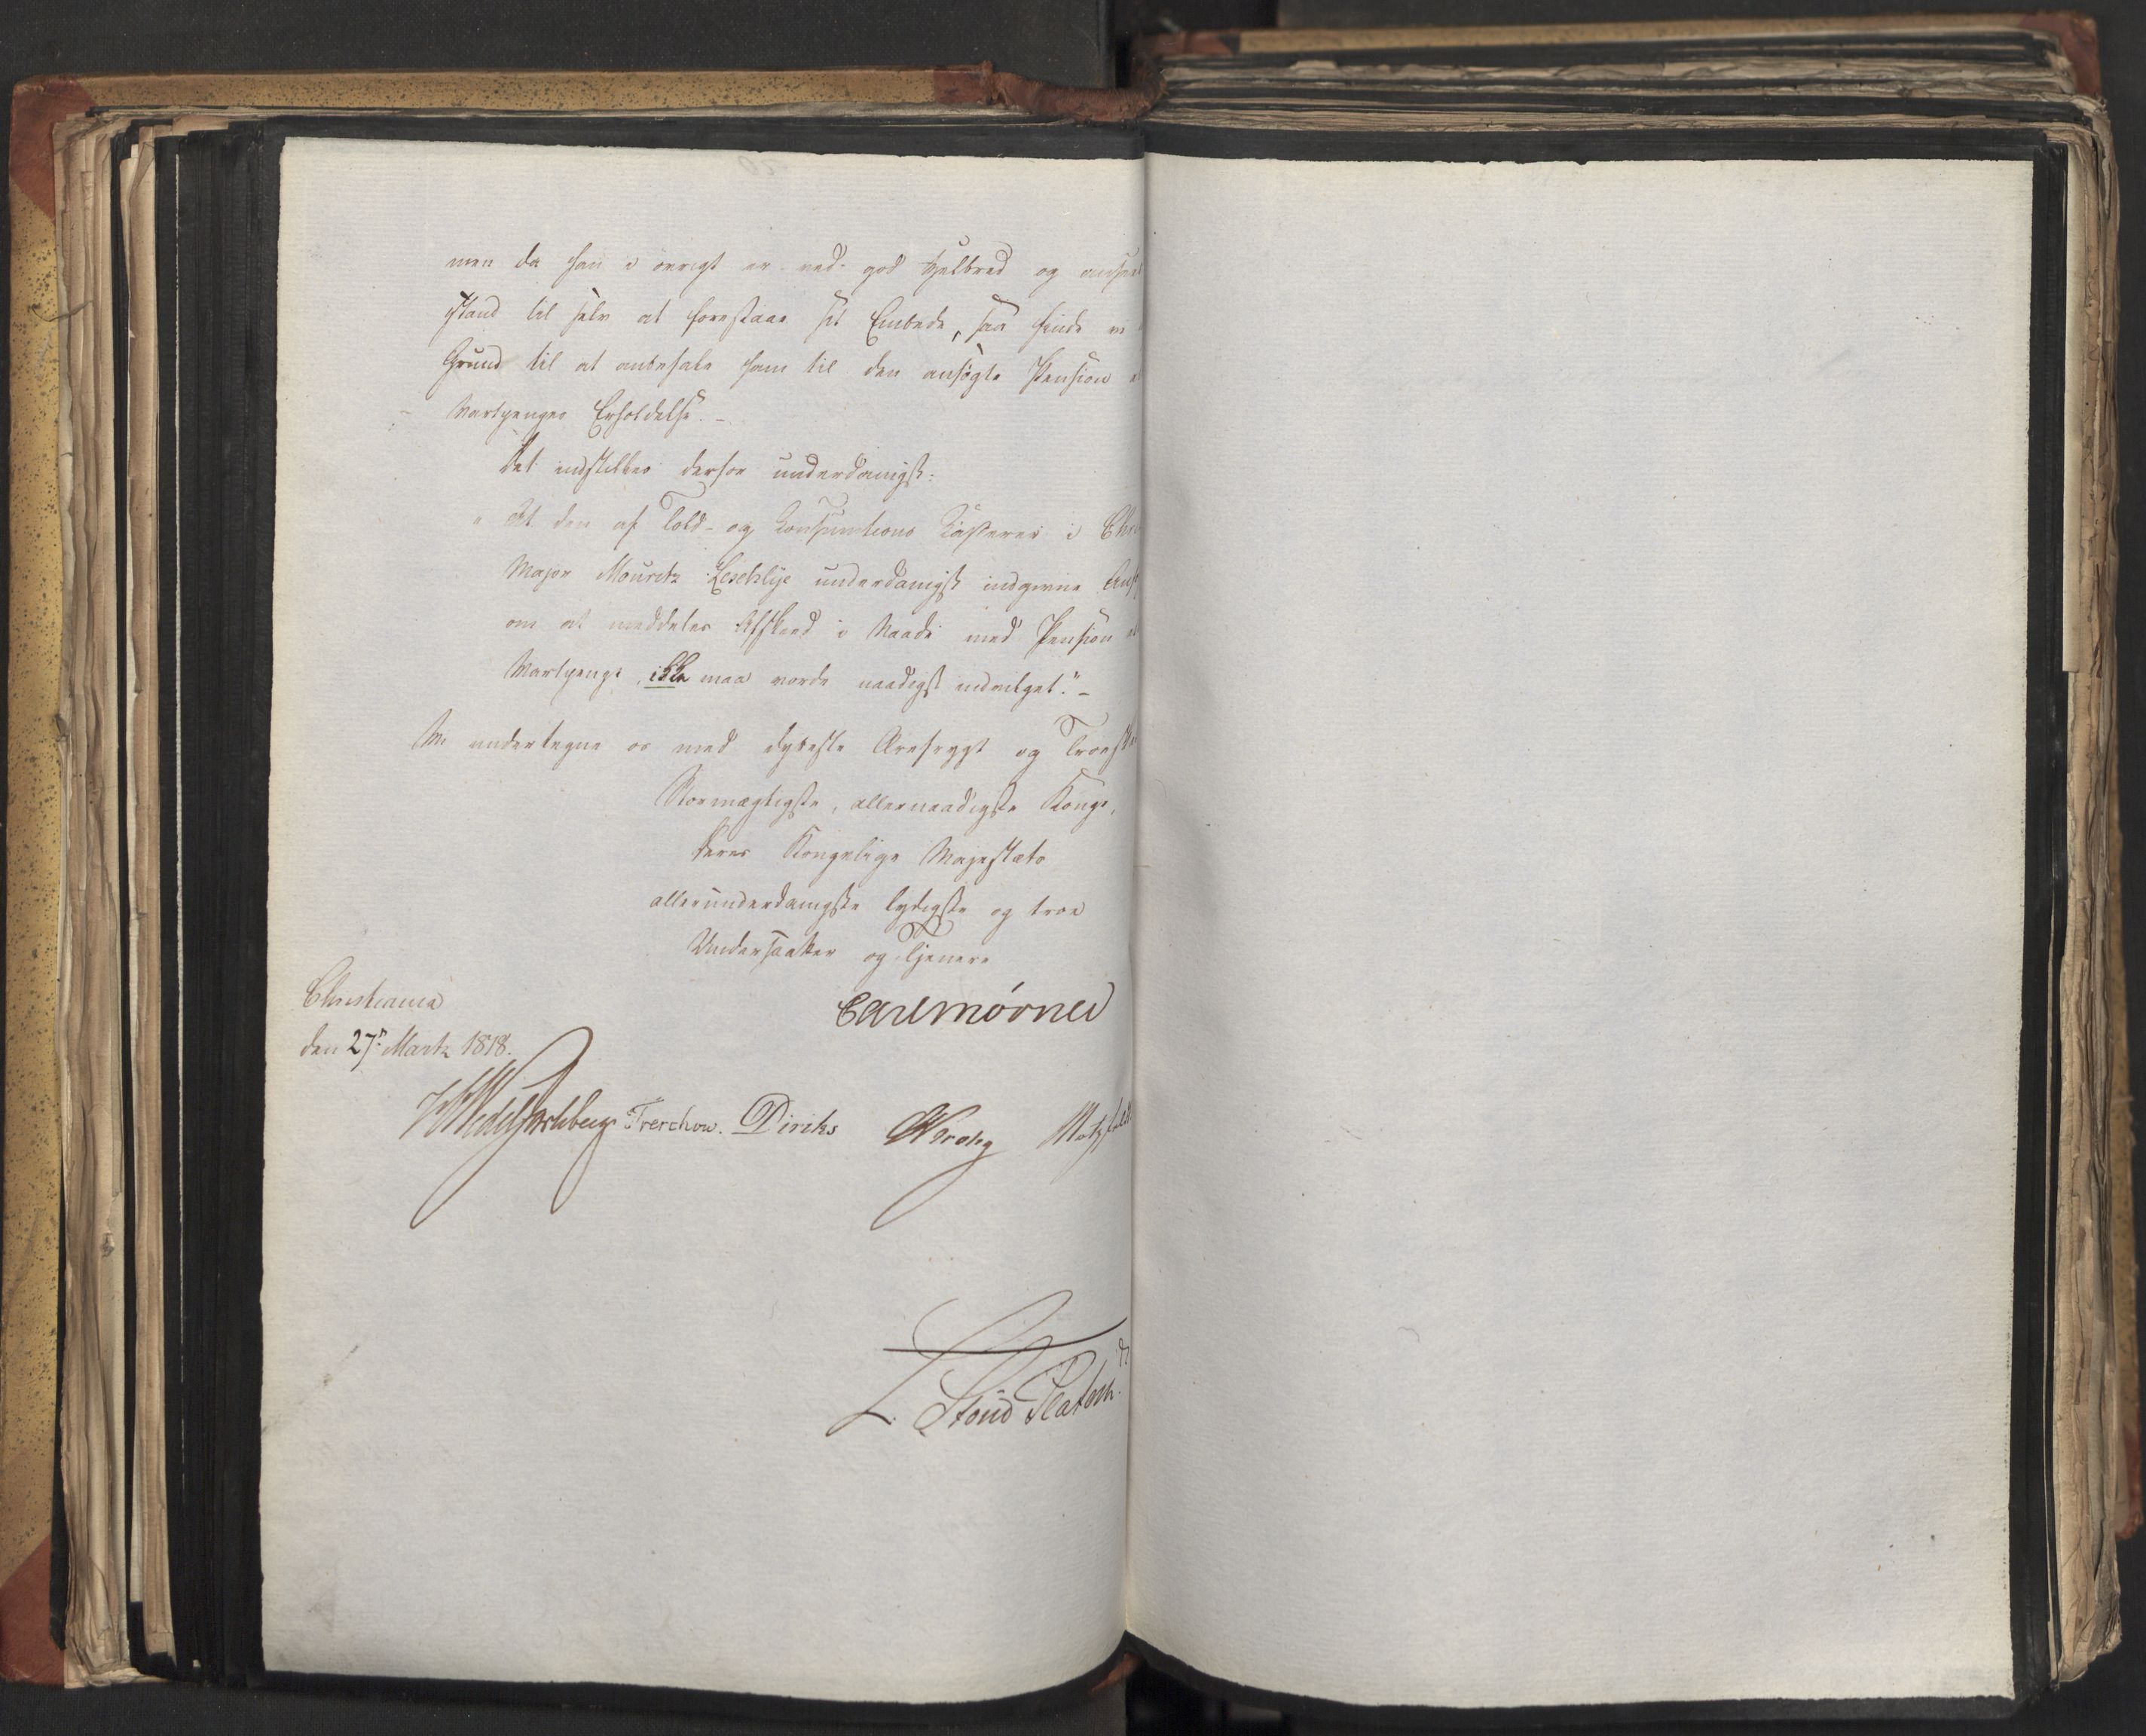 men da han i øvrigt er ved god Helbred og
stand til selv at forestaae sit Embede, saa finde vi
Grund til at anbefale ham til den ansøgte Pension
Vartpenges Erholdelse. –
Det indstilles derfor underdanigst:
"At den af Told- og Consumtions Kasserer i
Major Mouritz underdanigst indgivne
om at meddeles Afskeed i Naade med Pension
Vartpenge, ikke maa vorde naadigst indvilget." –
Vi undertegne os med dybeste Ærefrygt og
Stormægtigste, allernaadigste Konge,
Deres Kongelige Majestæts
allerunderdanigste lydigste og troe
Undersaatter og Tjenere
Christiania
den 27de Martz 1818.
Carl Mörner
Wedel Jarlsberg Treschow. Diriks Krohg Motzfeldt
L. Stoud Platou